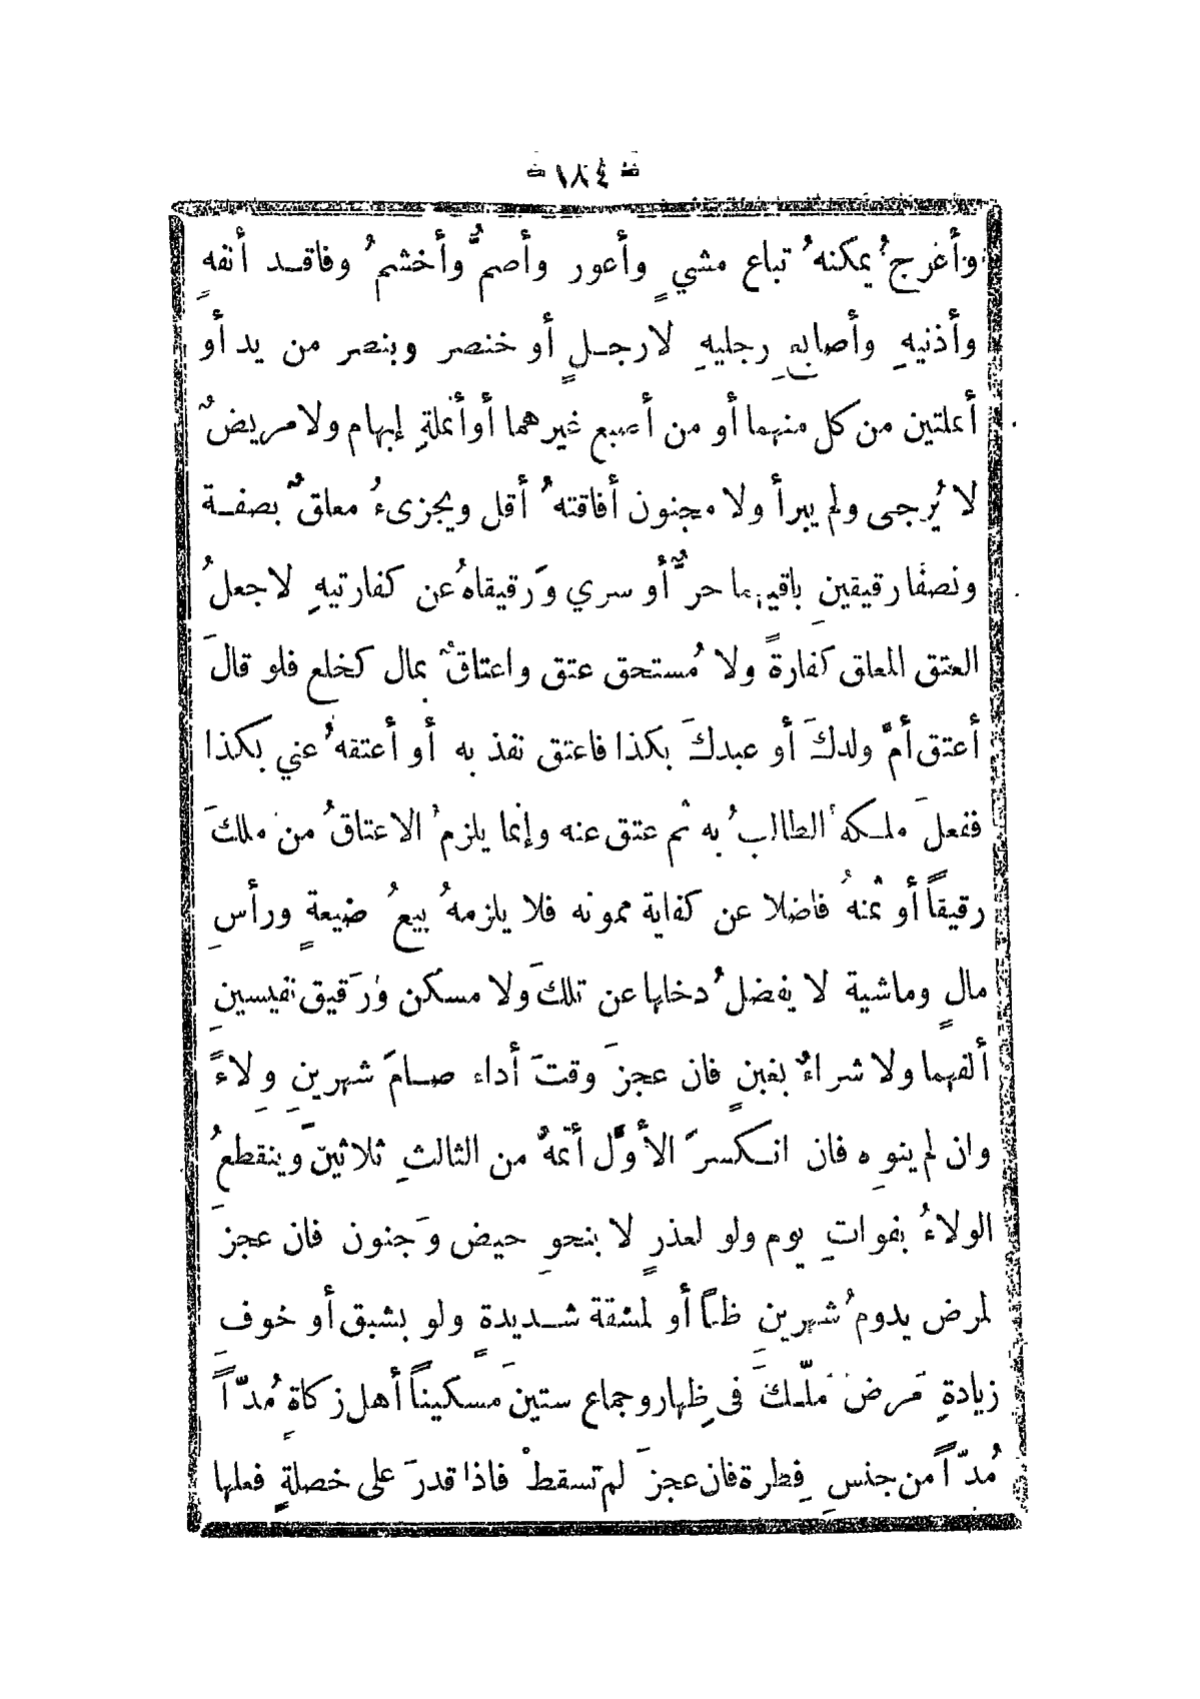 - ١٨٤ -
وأعرج ُ يمكنه ُ تباع مشي ٍ وأعور وأصم ُّ وأخشم ُ وفاقـد أنفهِ
وأذنيهِ وأصابع ِ رجليهِ لارجـل ٍ أو خنصر وبنصر من يد أو
أنملتين من كل منهما أو من أصبع غيرهما أوأنملةِ إبهام ولا مريض ٌ
لا يُرجى ولم يبرأ ولا مجنون أفاقته ُ أقل ويجزىءُ معلق ٌ بصفـة
ونصفا رقيقينِ باقيهما حر ٌّ أو سري وَرقيقاه ُ عن كفارتيهِ لاجعل ُ
العتق المعلق كفارةً ولا مُستحق عتق واعتاق ٌ بمال كخلع فلو قالَ
أعتق أمَّ ولدكَ أو عبدكَ بكذا فاعتق نفذ به أو أعتقه ُ عني بكذا
ففعلَ ملـكه ُ الطالب ُ به ثم عتق عنه وإنما يلزم ُ الاعتاق ُ من ملكَ
رقيقاً أو ثمنهُ فاضلا عن كفاية ممونه فلا يلزمه ُ بيع ُ ضيعةٍ ورأسِ
مالٍ وماشية لا يفضل ُ دخلها عن تلكَ ولا مسكن وَرَقيق نفيسينِ
ألفهما ولا شراءٌ بغبنٍ فان عجزَ وقتَ أداء صـامَ شهرينِ وِلاءً
وان لم ينوِه فان انـكسرَ الأوَّل أتمه ُ من الثالثِ ثلاثينَ وينقطع ُ
الولاء ُ بفواتِ يوم ولو لعذرٍ لا بنحوِ حيض وَجنون فان عجزَ
لمرض يدوم ُ شهرينِ ظناً أو لمشقة شـديدةٍ ولو بشبق أو خوفِ
زيادةِ مَرض مَلّـكَ فى ظِهار وجماع ستينَ مسكيناً أهل زكاةِ مُدّاً
مُدّاً من جنسِ فِطرة فان عجزَ لم تسقط ْ فاذا قدرَ على خصلةٍ فعلها